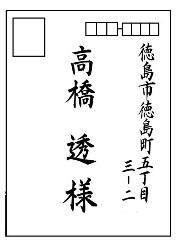 徳島市徳島町五丁目
三－二
高橋　透様